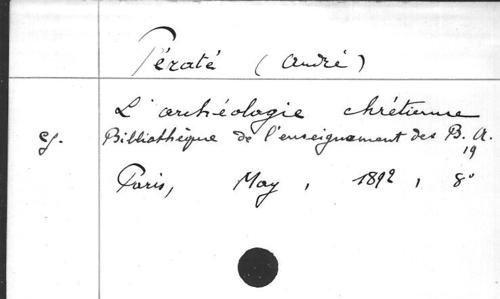 Pératé (André)
L'archéologie chrétienne
Bibliothèque de l'enseignement des B. A.
19
Paris, May, 1892, 8°